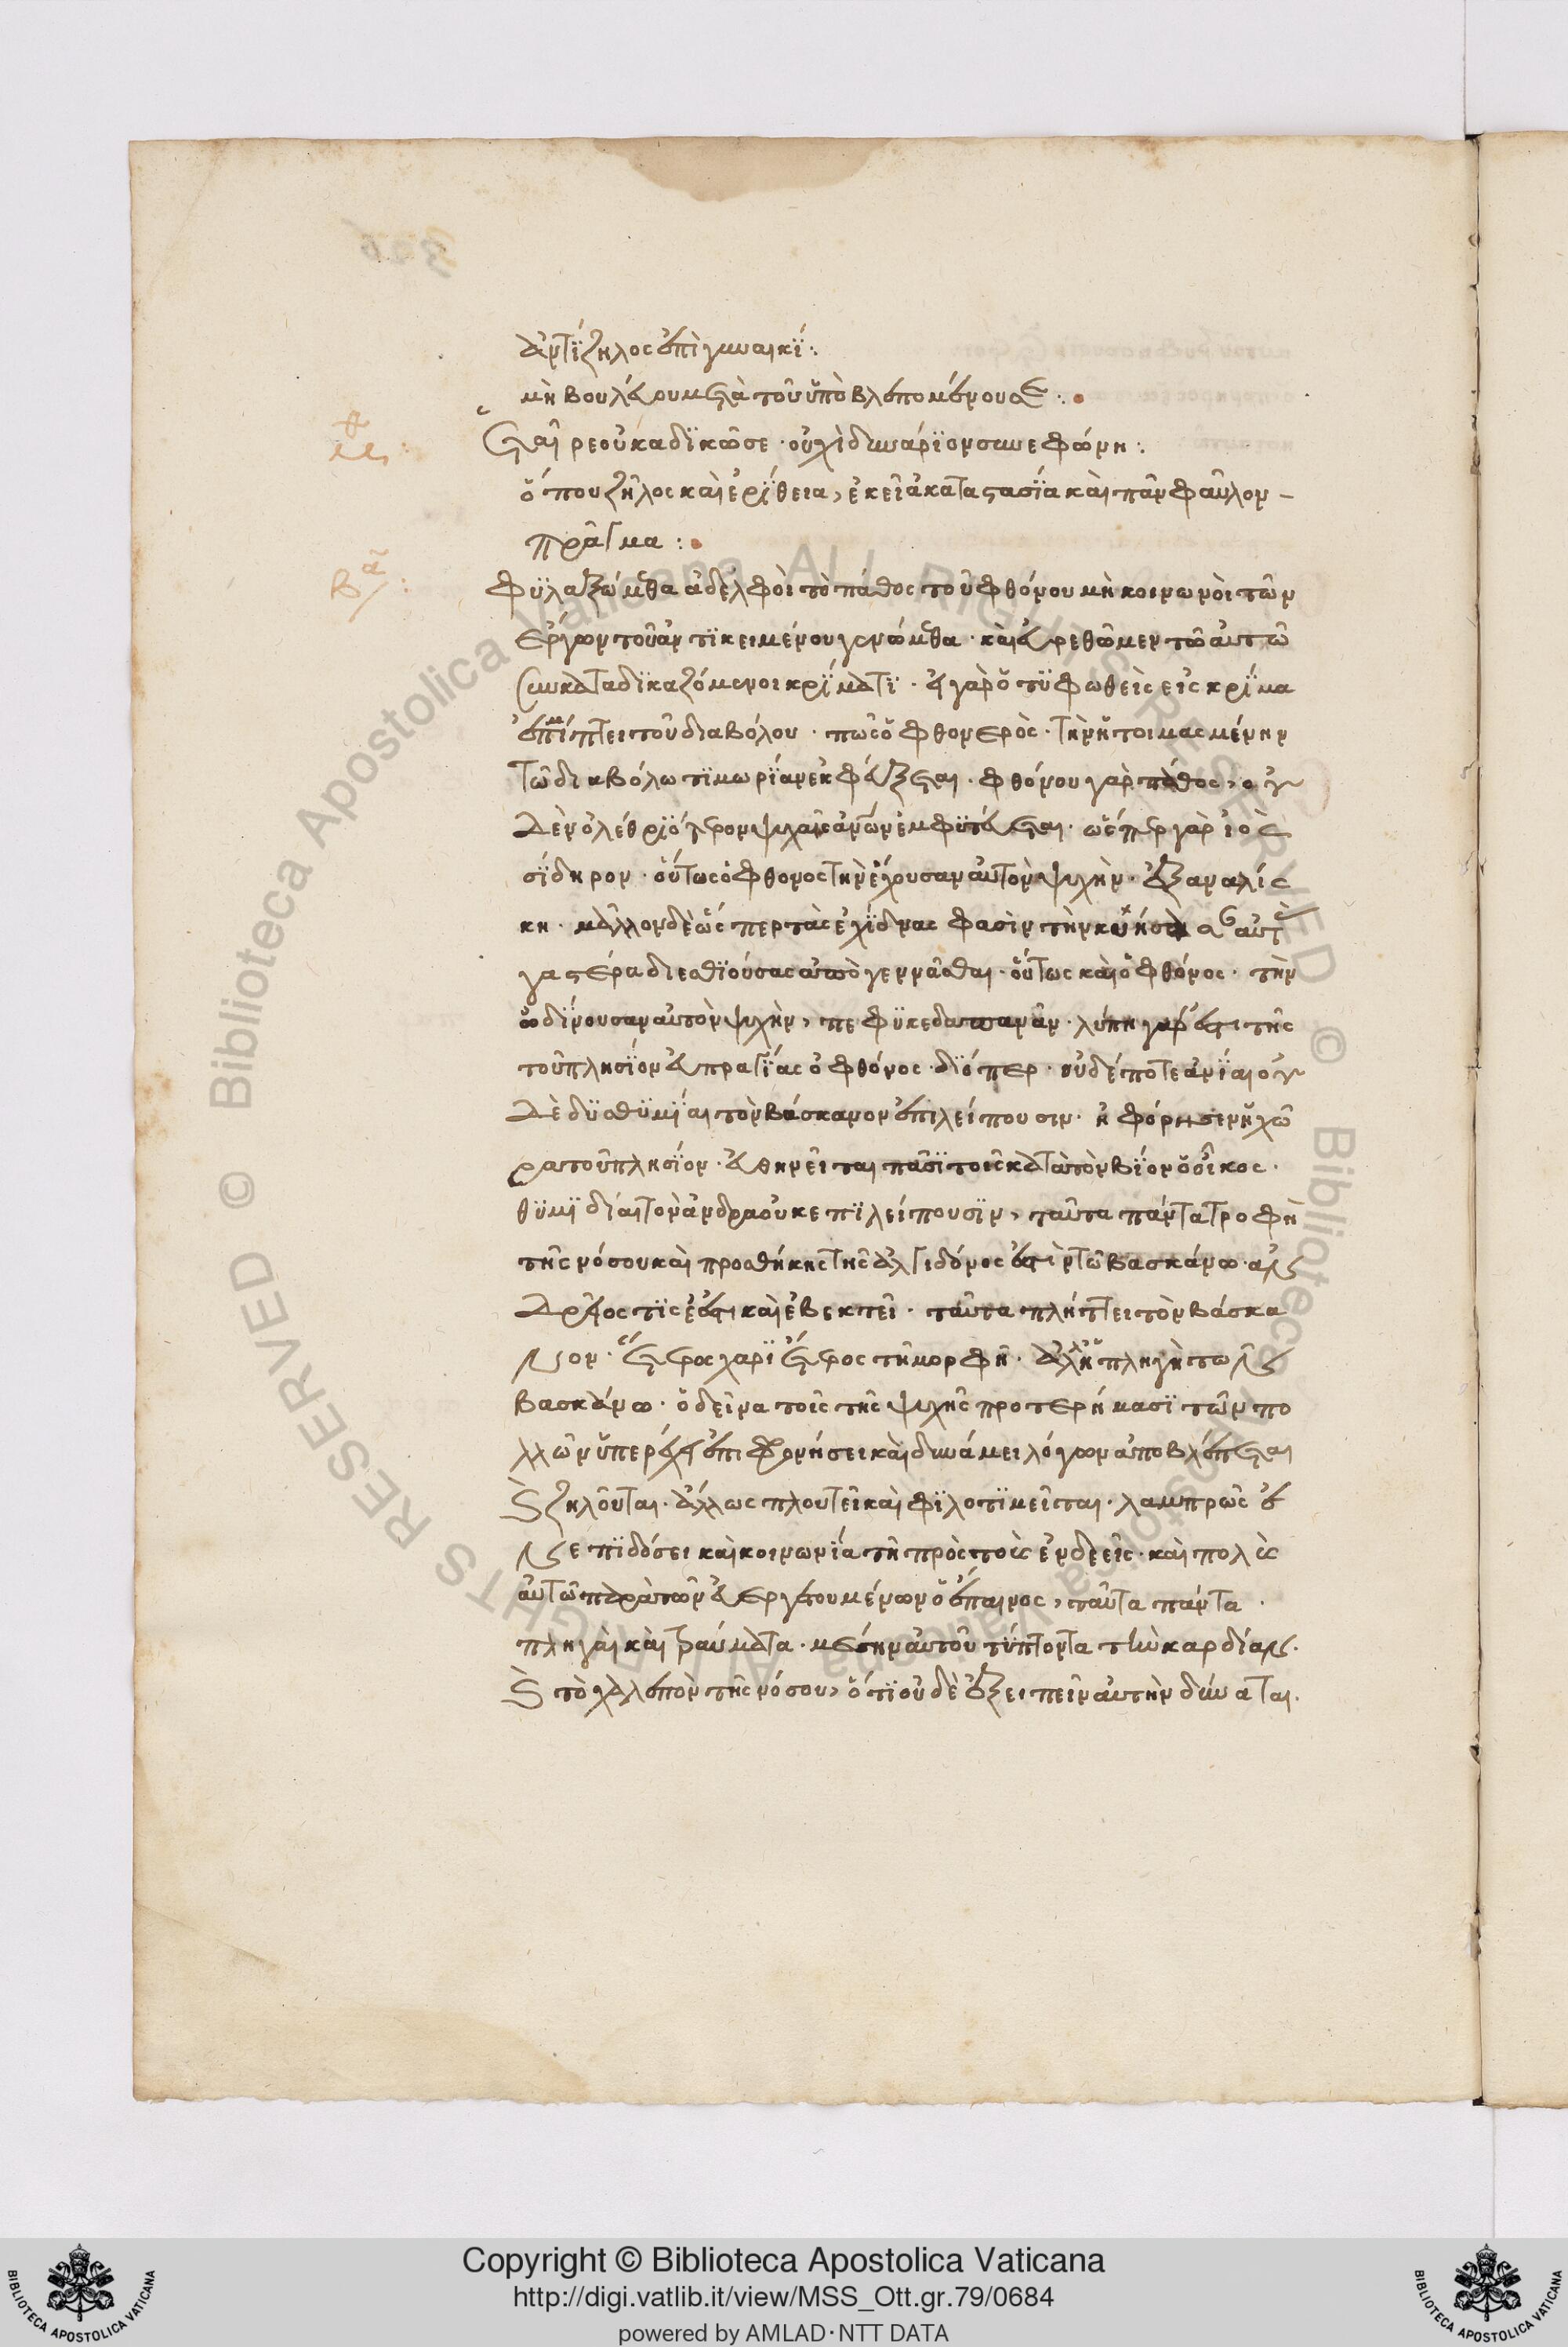 ἀντίζηλος ἐπὶ γυναικί :
μὴ βουλεύου μετὰ τοῦ ὑποβλεπομένου σε :
Ἑταῖρε οὐκ ἀδικῶ σε · οὐχὶ δηναρίον συνεφώνη :
ὅπου ζῆλος καὶ ἐρίθεια, ἐκεῖ ἀκαταστασία καὶ πᾶν φαῦλον
πρᾶγμα :
Φυλαξώμεθα ἀδελφοὶ τὸ πάθος τοῦ φθόνου μὴ κοινωνοὶ τῶν
ἔργων τοῦ ἀντικειμένου γενώμεθα · καὶ εὑρεθῶμεν τῶ αὐτῶ
συγκαταδικαζόμενοι κρίματι · εἰ γὰρ ὁ τυφωθεὶς εἰς κρίμα
ἐμπίπτει τοῦ διαβόλου · πῶς ὁ φθονερὸς · τὴν ἡτοιμασμένην
τῶ διαβόλω τιμωρίαν ἐκφεύξεται · φθόνου γὰρ πάθος, οὐ
δὲν ὀλεθριότερον ψυχαῖς ἀνῶν ἐμφύεται · ὥσπερ γὰρ ἰὸς
σίδηρον · οὕτως ὁ φθόνος τὴν ἔχουσαν αὐτὸν ψυχὴν · ἐξαναλίσ
κη · μᾶλλον δὲ ὥσπερ τὰς ἐχίδνας φασὶν τὴν κυήσασαν αὐτὰς
γαστέρα διεσθιούσας ἀπογεννᾶσθαι · οὕτως καὶ ὁ φθόνος · τὴν
ὠδίνουσαν αὐτὸν ψυχὴν, πέφυκε δαπανᾶν · λύπη γάρ ἐστι τῆς
τοῦ πλησίον εὐπραγίας ὁ φθόνος · διόπερ · οὐδέποτε ἀνίαι οὐ
δὲ δυσθυμίαι τὸν βάσκανον ἐπιλείπουσιν · ἡ φόρησεν ἡ χώ
ρα τοῦ πλησίον · εὐθηνεῖται πᾶσι τοῖς κατὰ τὸν βίον ὁ οἶκος ·
θυμιδίαι τὸν ἄνδρα οὐκ ἐπιλείπουσιν, ταῦτα πάντα τροφὴ
τῆς νόσου καὶ προσθήκης τῆς ἀλγιδόνος ἐστὶν τῶ βασκάνω · ἀν
δρεῖος τίς ἐστι καὶ εὐεκτεῖ · ταῦτα πλήττει τὸν βάσκα
νον · ἕτερος χαριέστερος τῆ μορφῆ · ἄλλη πληγὴ τῶ
βασκάνω · ὁ δεῖνα τοῖς τῆς ψυχῆς προτερήμασι τῶν πο
λλῶν ὑπερέχει ἐπὶ φρονήσει καὶ δυνάμει λόγων ἀποβλέπεται
καὶ ζηλοῦται · ἄλλως πλουτεῖ καὶ φιλοτιμεῖται · λαμπρῶς ἐ
ν ἐπιδόσει καὶ κοινωνία τῆ πρὸς τοὺς ἐνδεεῖς · καὶ πολὺς
αὐτῶ παρὰ τῶν εὐεργετουμένων ὁ ἔπαινος, ταῦτα πάντα ·
πληγαὶ καὶ τραύματα · μέσην αὐτοῦ τύπτοντα τὴν καρδίαν ·
καὶ τὸ χαλεπὸν τῆς νόσου, ὅτι οὐδὲ ἐξειπεῖν αὐτὴν δύναται ·
Copyright © Biblioteca Apostolica Vaticana
http://digi.vatlib.it/view/MSS_Ott.gr.79/0684
powered by AMLAD·NTT DATA